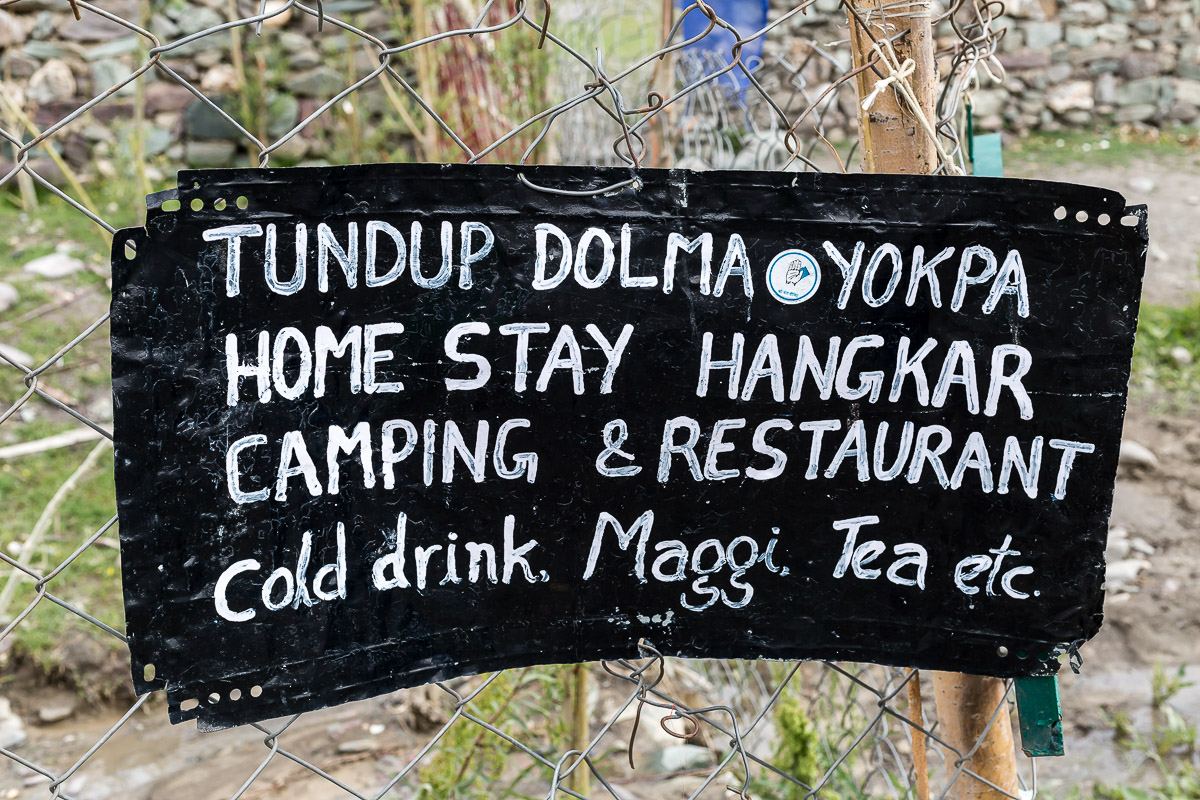 TUNDUP DOLMA YOKPA
HOME STAY HANGKAR
CAMPING & RESTAURANT
Cold drink, Maggi, Tea etc.